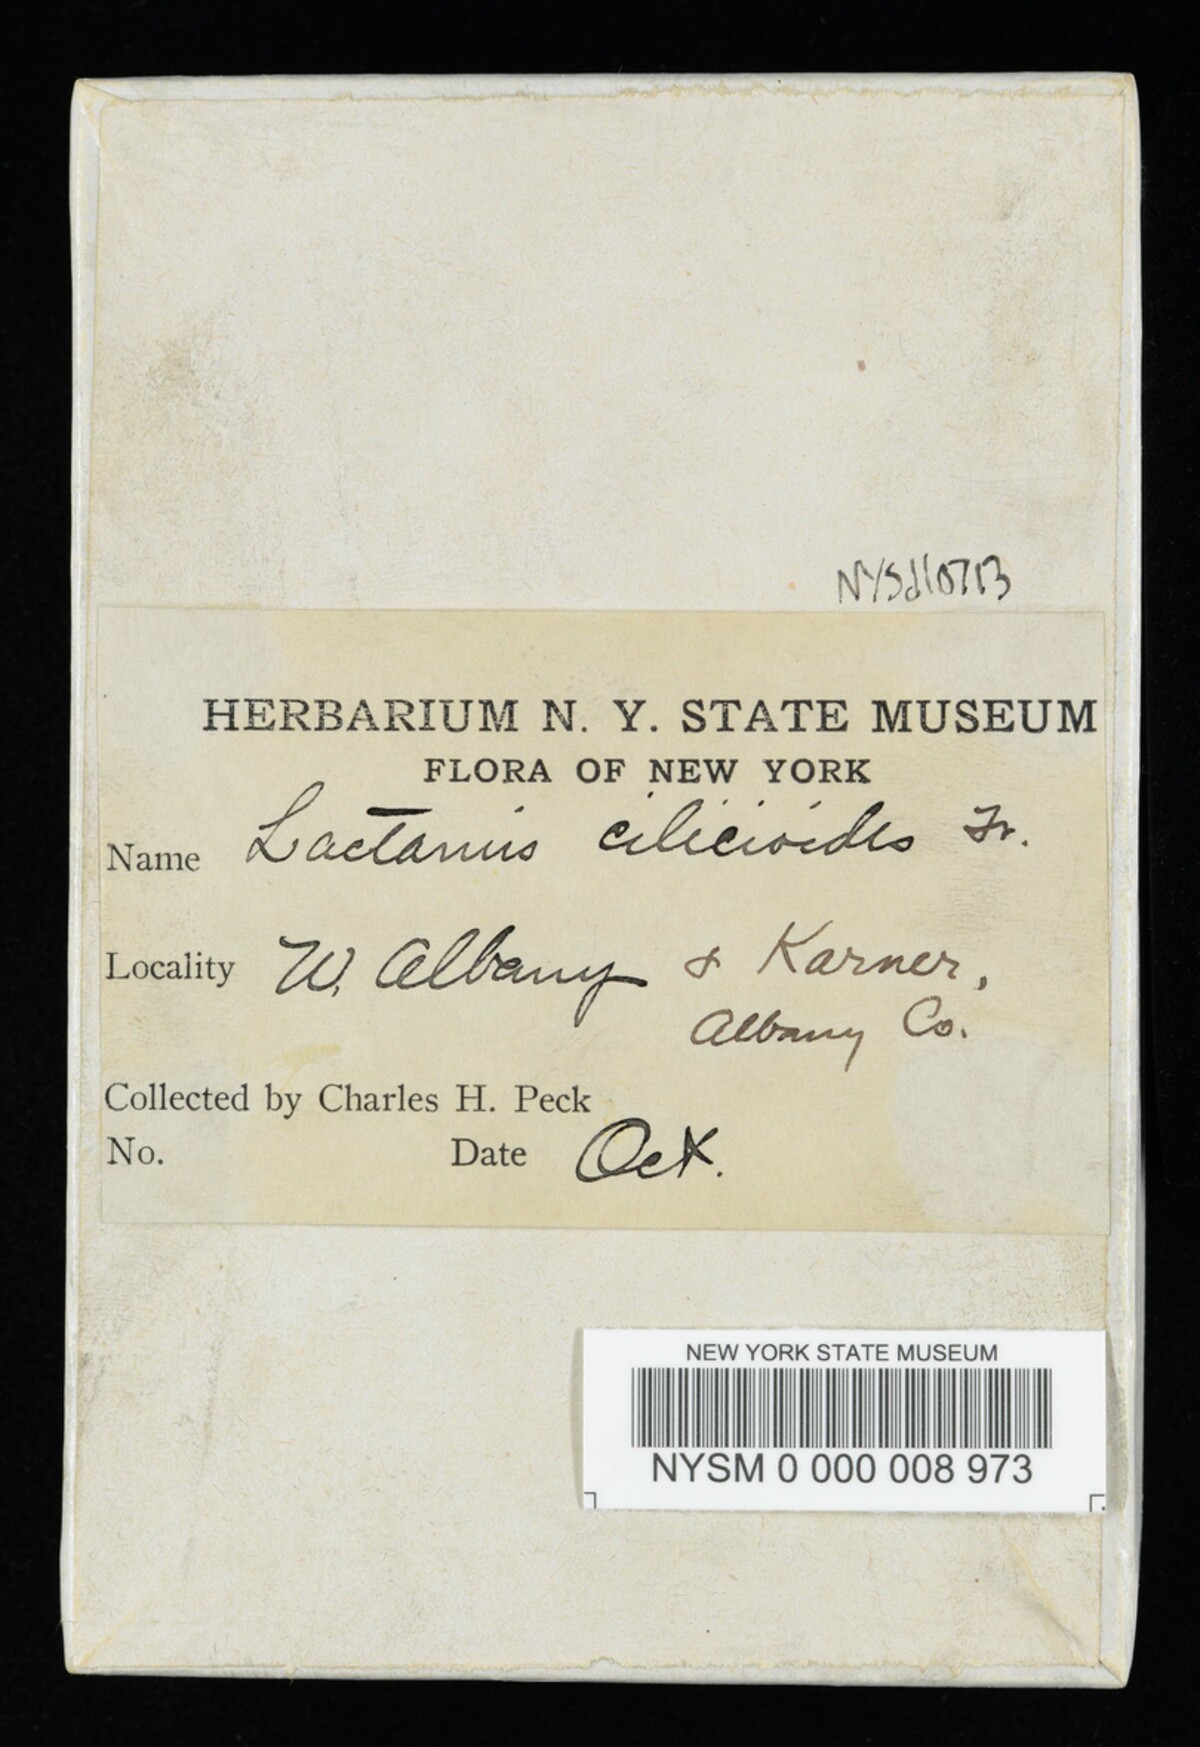 NYSd10713
HERBARIUM N. Y. STATE MUSEUM
FLORA OF NEW YORK
Name Lactarius cilicioides Fr.
Locality W. Albany & Karner,
Albany Co.
Collected by Charles H. Peck
No. Date Oct.
NEW YORK STATE MUSEUM
NYSM 0 000 008 973